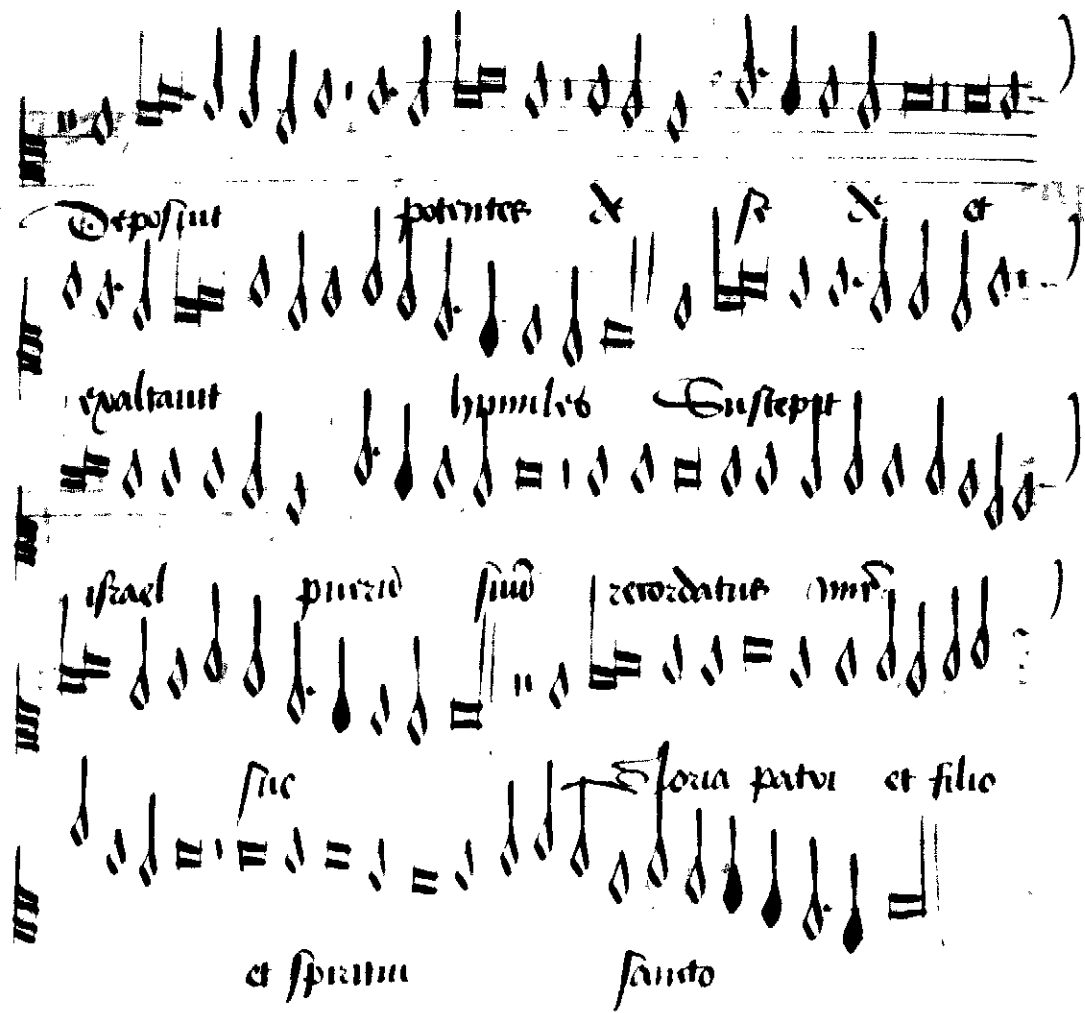 Deposuit potentes de se de et
exaltauit humiles Suscepit
israel puerū suū recordatus mīe
sue Gloria patri et filio
et spiritui sancto